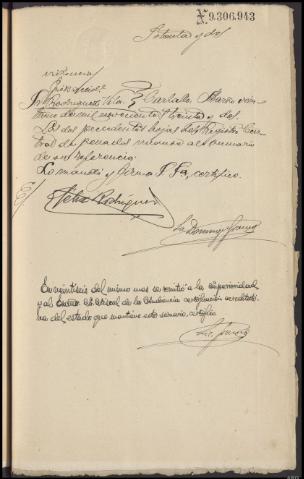 N 9.306.943
Setenta y dos
Providencia
Juez Accidtal
Sr Rodriguez Vila Carballo Marzo vein
de mil novecientos treinta y dos
Los dos precedentes hojas del Registro Cen
tral de penados unanse al sumario
de su referencia.
Lo mandó y firma S Sa, certifico.
Felix Rodriguez
En veintiseis del mismo mes se remitió a la superioridad
y al Fiscal de la Audiencia
va del estado que mantiene este sumario, certifico